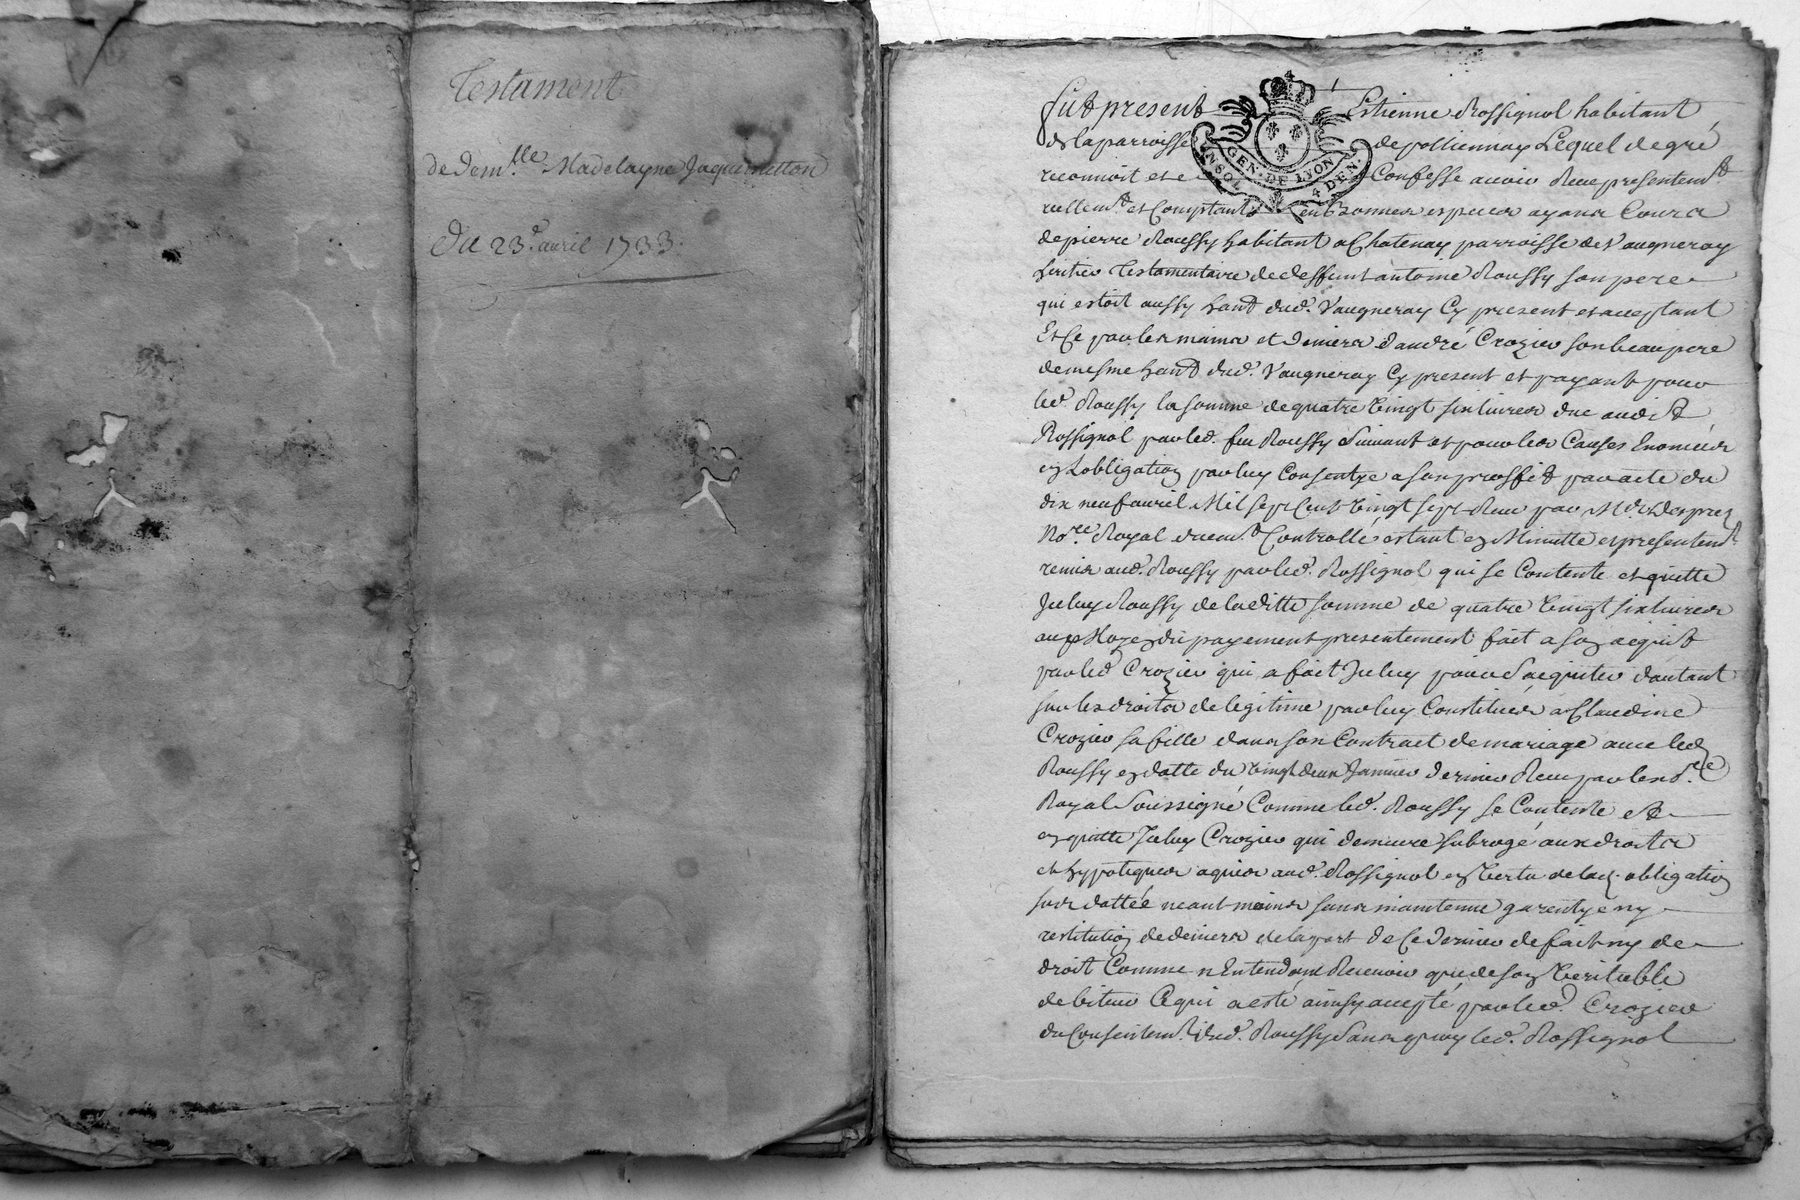 Testament
de Dem.lle Madelayne Jaquemetton
du 23.e avril 1733.
GEN. DE LYON
4 DEN.
fut present Estienne Rossignol habitant
de la parroisse de pollionnay Lequel de gré
reconnoit et Confesse avoir Receu presentem.t
reellem.t et Comptant en bonnes especes ayans Cours
de pierre Roussy habitant a Chatenay parroisse de Vaugneray
heritier Testamentaire de deffunt antoine Roussy son pere
qui estoit aussy hant dud. Vaugneray Cy present et acceptant
Et Ce par les mains et deniers d'andré Crozier son beau pere
de mesme hant dud. Vaugneray Cy present et payant pour
led. Roussy la somme de quatre vingt six livres due audit
Rossignol par led. feu Roussy Suivant et pour les Causes Enoncées
en Lobligation par luy Consentye a son proffit par acte du
dix neuf avril Mil sept Cent vingt sept Receu par M.e
No.re Royal duem.t Controllé estant en Minutte et presentem.t
remis aud. Roussy par led. Rossignol qui se Contente et quitte
Iceluy Roussy de laditte somme de quatre vingt six livres
au Moyen du payement presentement fait a son acquit
par led. Crozier qui a fait Iceluy pour s'acquitter d'autant
sur les droits de legitime par luy Constitués a Claudine
Crozier sa fille dans son Contract de mariage avec led.
Roussy en datte du vingt deux Janvier dernier Receu par le no.re
Royal Soussigné Comme led. Roussy se Contente et
en quitte Iceluy Crozier qui demeure subrogé aux droits
et hypoteques aquis aud. Rossignol en vertu de lad. obligation
sus dattée neantmoins sans maintenue garentye ny
restitution de deniers de la part de Ce dernier de fait ny de
droit Comme n'Entendant Recevoir que de son veritable
debiteur Ce qui a esté ainsy accepté par led. Crozier
du Consentem.t dud. Roussy Sans quoy led. Rossignol